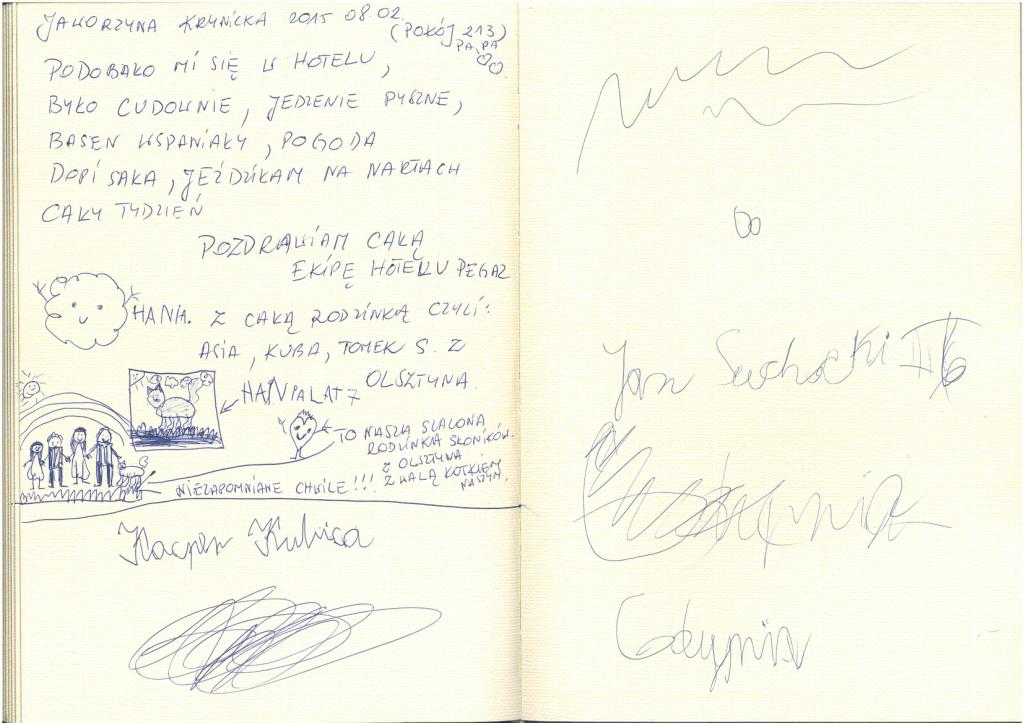 JAWORZYNA KRYNICKA 2015 08.02.
(POKÓJ 213)
PA, PA
PODOBAŁO MI SIĘ W HOTELU,
BYŁO CUDOWNIE, JEDZENIE PYSZNE,
BASEN WSPANIAŁY, POGODA
DOPISAŁA, JEŹDZIŁAM NA NARTACH
CAŁY TYDZIEŃ
POZDRAWIAM CAŁĄ
EKIPĘ HOTELU PEGAZ
HANIA. Z CAŁĄ RODZINKĄ CZYLI:
ASIA, KUBA, TOMEK S. Z
OLSZTYNA.
HAN LAT 7
TO NASZA SZALONA
RODZINKA SŁONIKÓW.
Z OLSZTYNA
Z MAŁĄ KOTKIEM
NASZYM.
NIEZAPOMNIANE CHWILE!!!
Kacper Kubica
Do
Jan Suchocki